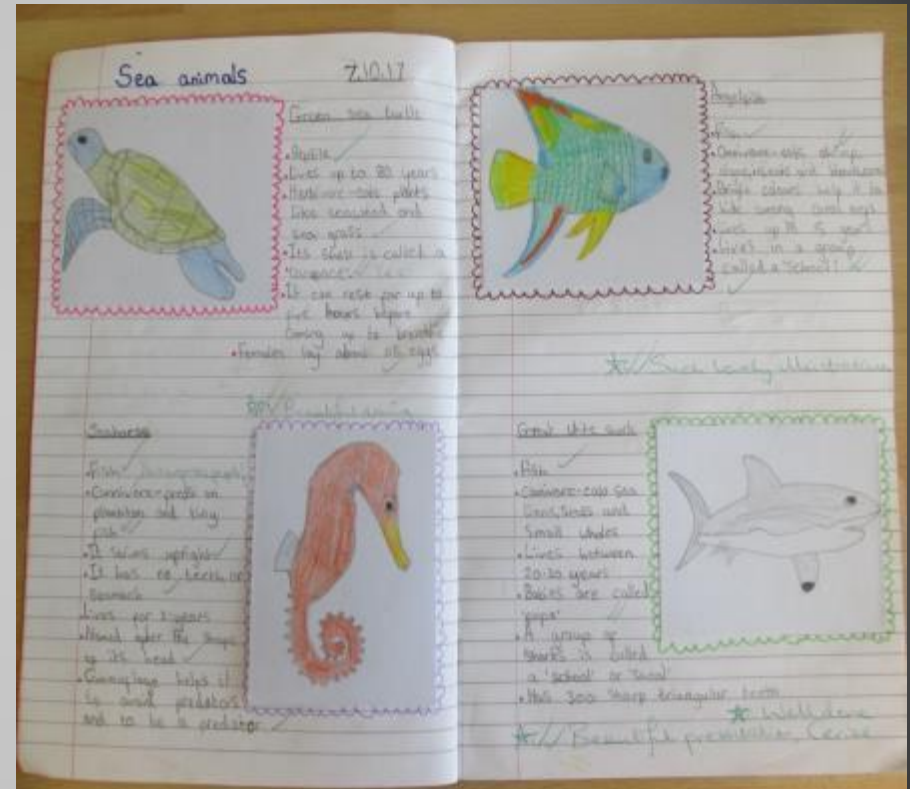 Sea animals 7.10.17
Green sea turtle
• Reptile
• Lives up to 80 years
• Herbivore - eats plants
like seaweed and
sea grass
• Its shell is called a
• It can rest for up to
five hours before
coming up to breathe
• Females lay about eggs
Beautiful
Seahorse
• Fish
• Carnivore - feeds on
plankton and tiny
fish
• It swims upright
• It has no teeth or
stomach
Lives for years
• Named after the shape
of its head
• Camouflage helps it
to avoid predators
and to be a predator
Angelfish
• Fish
• Omnivore - eats shrimp,
• Bright colours help it to
hide among coral
• Lives up to 15 years
• Lives in a group
called a 'school'
Such lovely illustrations
Great white shark
• Fish
• Carnivore - eats sea
lions, seals and
small whales
• Lives between
20-30 years
• Babies are called
'pups'
• A group of
sharks is called
a 'school' or 'shoal'
• Has 300 sharp triangular teeth
Well done
Beautiful presentation,